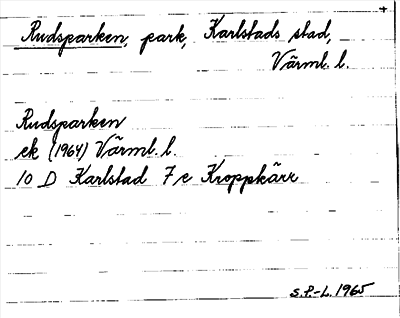 Rudsparken, park, Karlstads stad,
Värml. l.
Rudsparken
ek (1964) Värml. l.
10 D Karlstad 7 e Kroppkärr
S.P.-L. 1965